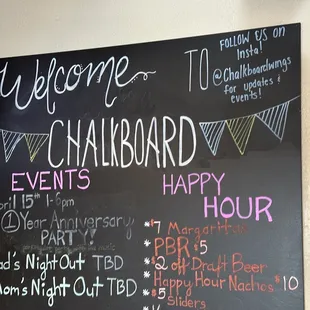 Welcome TO
FOLLOW US ON
Insta!
@Chalkboardwings
for updates &
events!
CHALKBOARD
EVENTS
pril 15th 1-6pm
1 Year Anniversary
PARTY!
ad's Night Out TBD
om's Night Out TBD
HAPPY
HOUR
* $7 Margaritas
* PBR $5
* $2 off Draft Beer
* Happy Hour Nachos $10
* $5 Sliders